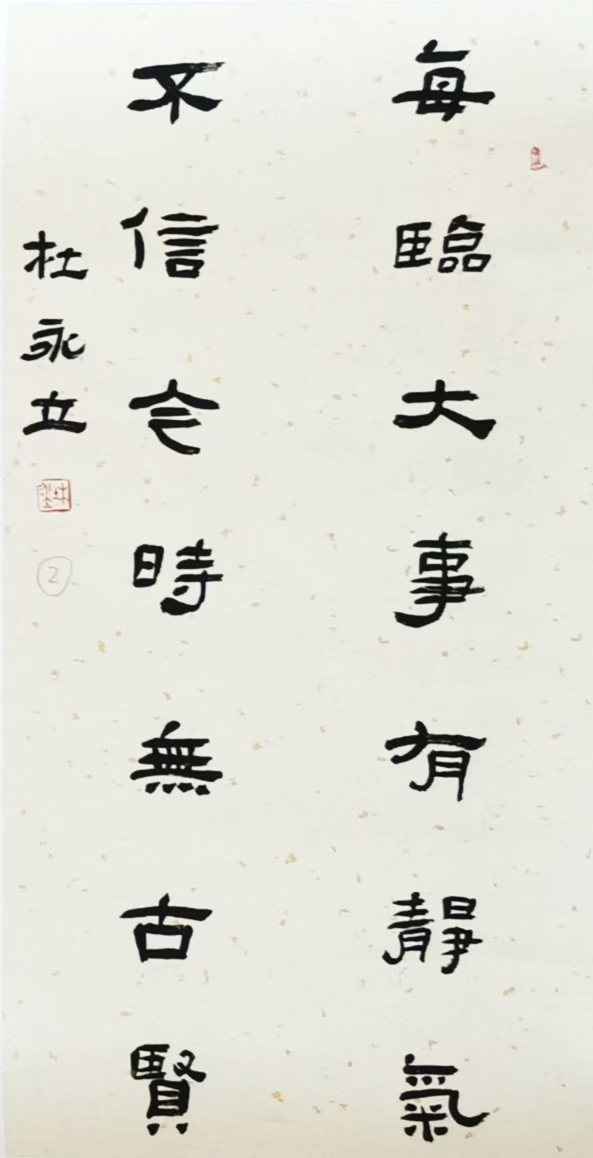 每臨大事有靜氣
不信今時無古賢
杜永立
2